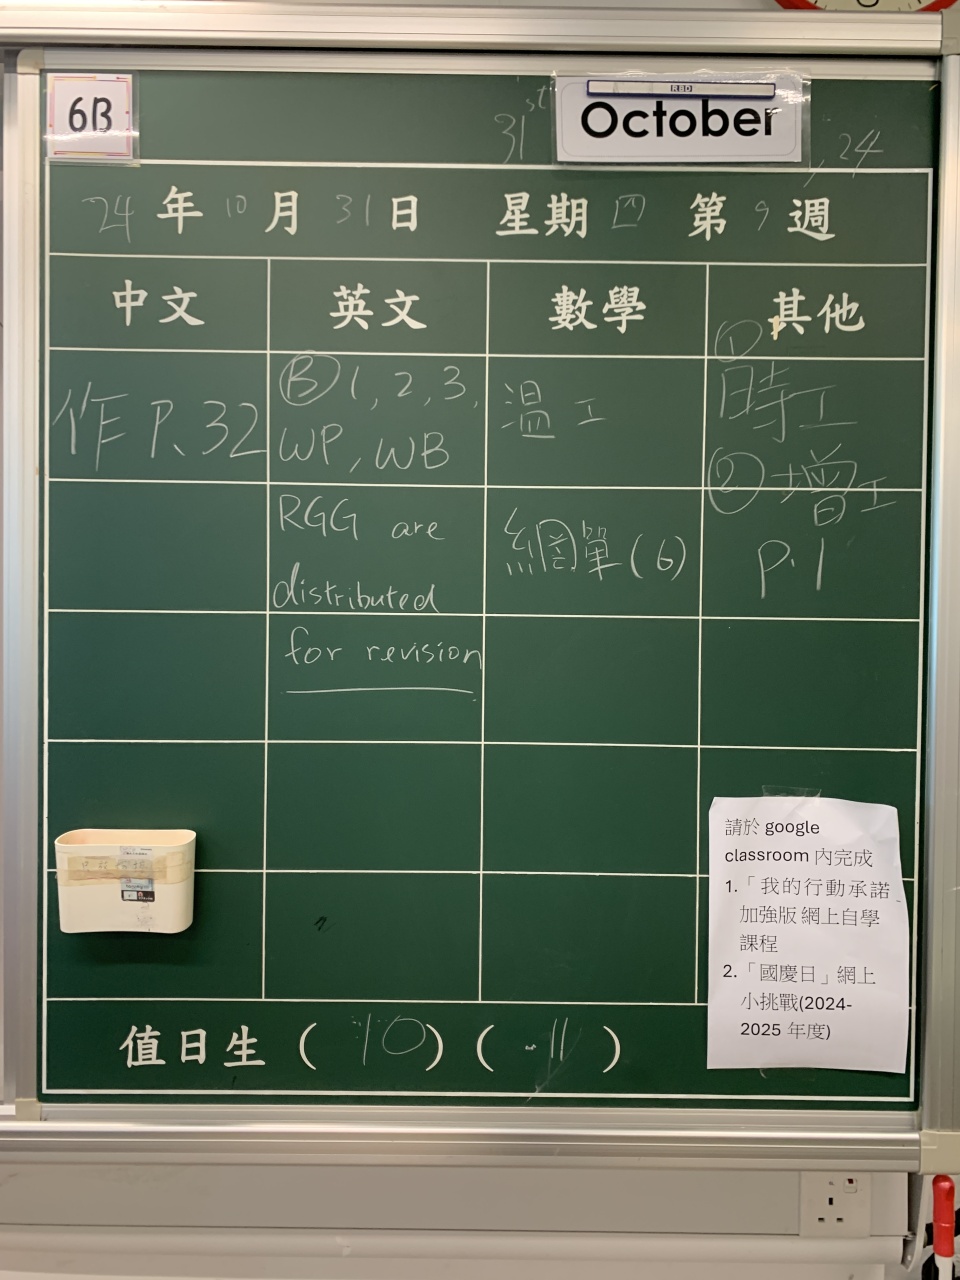 6B
31st
October
RBD
, 24
24年10月31日 星期四 第9週
中文
英文
數學
其他
作 P.32
Ⓑ 1, 2, 3,
WP, WB
RGG are
distributed
for revision
溫工
網單(6)
① 時工
② 增工
P.1
請於 google
classroom 內完成
1.「我的行動承諾
加強版 網上自學
課程
2.「國慶日」網上
小挑戰(2024-
2025 年度)
值日生 ( 10 ) ( 11 )